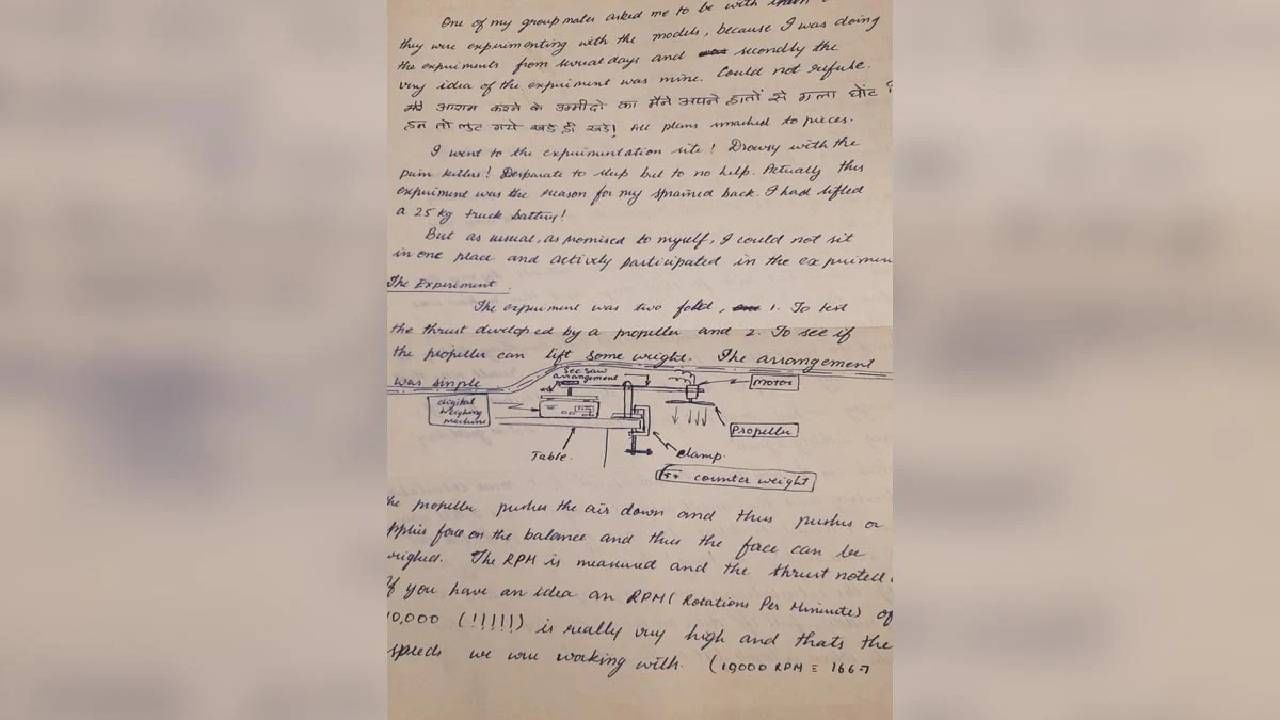 One of my groupmates asked me to be with them
they were experimenting with the models, because I was doing
the experiments from several days and secondly the
very idea of the experiment was mine. Could not refuse.
मेरे आराम करने के उम्मीदों का मैंने अपने हातों से गला घोंट
हम तो लुट गये खडे ही खडे! All plans smached to pieces.
I went to the experimentation site! Drowsy with the
pain killers! Desparate to sleep but to no help. Actually this
experiment was the reason for my sprained back. I had lifted
a 25 kg truck battery!
But as usual, as promised to myself, I could not sit
in one place and actively participated in the experimen
The Experiment.
The experiment was two fold, 1. To test
the thrust developed by a propeller and 2. To see if
the propeller can lift some weight. The arrangement
was simple
See saw
arrangement
motor
digital
weighing
machine
Propeller
Table.
clamp.
counter weight
he propeller pushes the air down and thus pushes or
pplies force on the balance and thus the force can be
eighed. The RPM is measured and the thrust noted
If you have an idea an RPM (Rotations Per Mininute) of
10,000 (!!!!!!) is really very high and thats the
speeds we were working with. (10,000 RPM = 1667